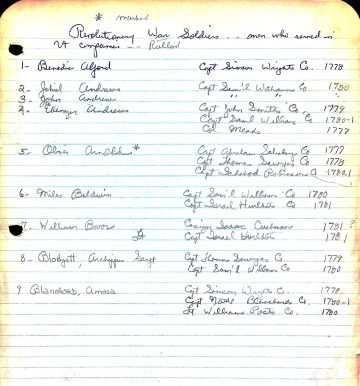 * married
Revolutionary War Soldiers .. men who served in
VT companies --- Rutland
1- Benedic Alford Capt Simeon Wrights Co 1778
2- Jehiel Andrews Capt Sam'l Williams Co 1780
3- John Andrews " " "
4- Ebenezer Andrews Capt John Smiths Co 1779
Capt Saml Williams Co 1780-1
Col Meads 1777
5- Oliver Arnold * Capt Abraham Salsbury Co 1777
Capt Thomas Sawyers Co 1778
Capt Robinsons Co 1780-1
6- Miles Baldwin Capt Sam'l Williams Co 1780
Capt Israel Hurlbuts Co 1781
7- William Barr Ensign Isaac Cushman 1781 ?
Lt Capt Israel Hurlbut 1781
8- Blodgett, Archippus Sergt Capt Thomas Sawyers Co 1779
Capt Sam'l Williams Co 1780
9 Blanchard, Amos Capt Simeon Wrights Co 1778
Capt Blanchards Co 1780-1
Lt Williams Pratts Co. 1780